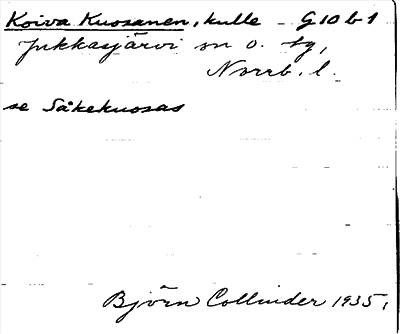 Koiva Kuosanen, kulle - G 10 b 1
Jukkasjärvi sn o. tg,
Norrb. l.
se Såkekuosas
Björn Collinder 1935,